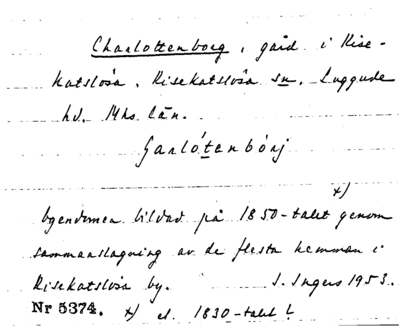 Charlottenborg, gård i Rise-
katslösa, Risekatslösa sn. Luggude
hd. Mhs län.
Šarlótenbórj
x)
Egendomen bildad på 1850-talet genom
sammanslagning av de flesta hemman i
Risekatslösa by. I. Ingers 1953.
Nr 5374. x) el. 1830-talet?